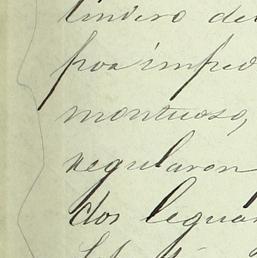 lindero del
por imped
montuoso,
regularon
dos leguas